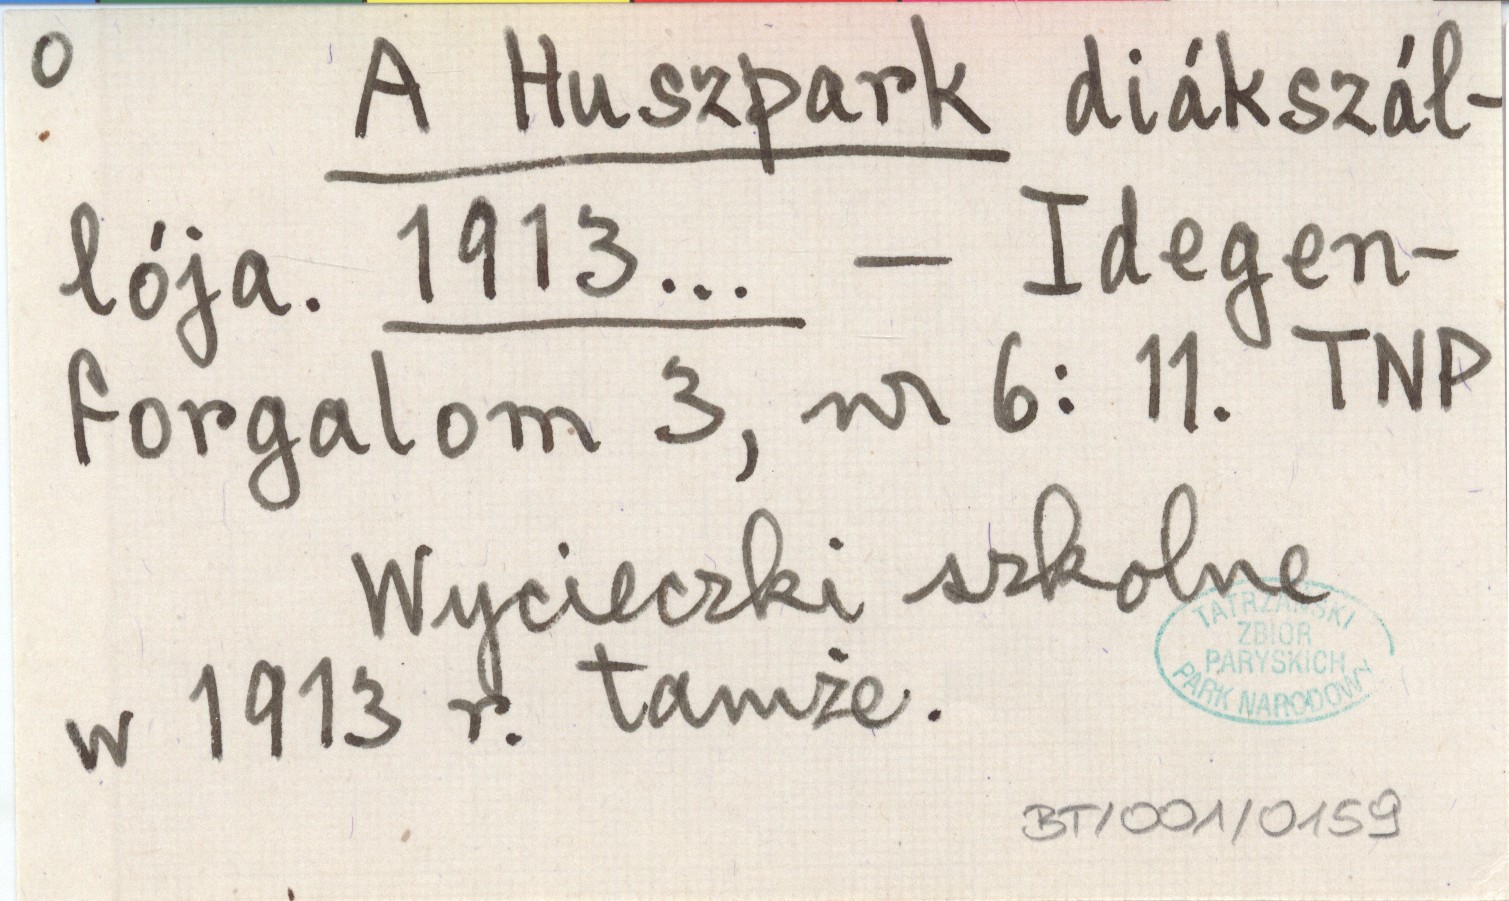 O
A Huszpark diákszál-
lója. 1913... — Idegen-
forgalom 3, nr 6: 11. TNP
Wycieczki szkolne
w 1913 r. tamże.
TATRZAŃSKI
ZBIOR
PARYSKICH
PARK NARODOWY
BT/001/0159